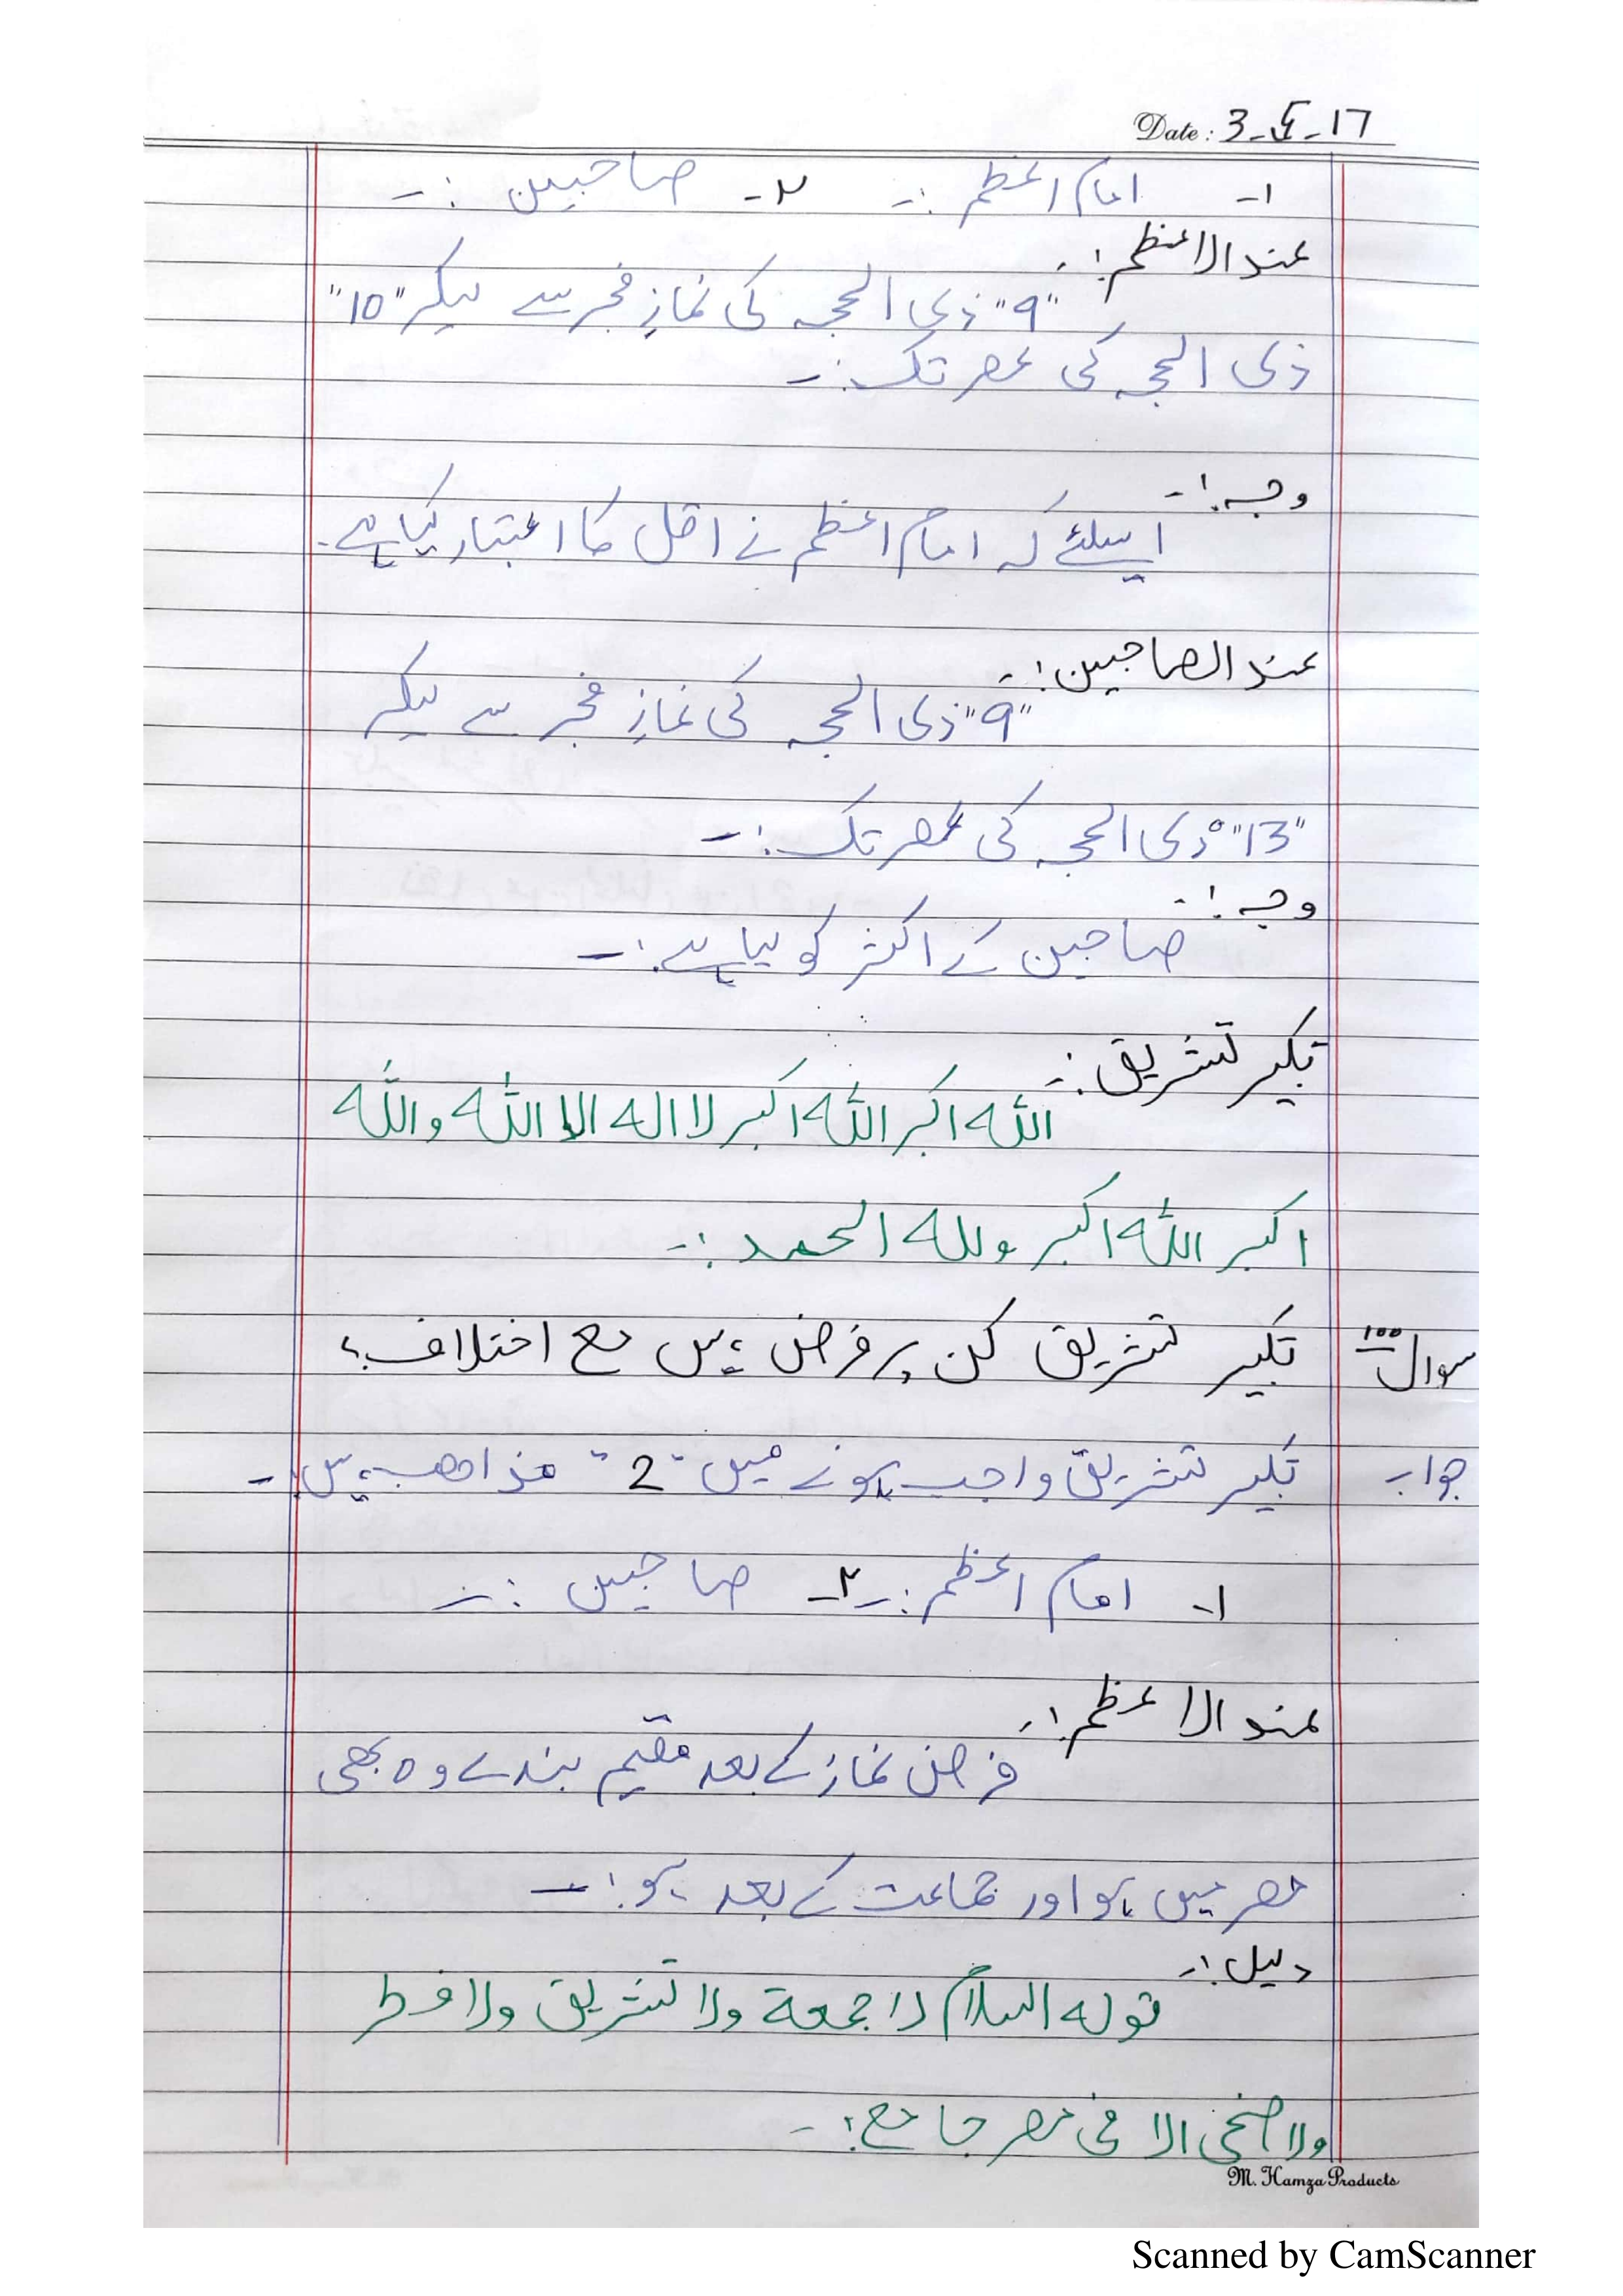 Date: 3-5-17
۱- امام اعظم :- ۲- صاحبین :-
عند الاعظم :-
"9" ذی الحجہ کی نمازِ فجر سے لیکر "10"
ذی الحجہ کی عصر تک :-
وجہ :-
اسلئے کہ امام اعظم نے اقل کا اعتبار کیا ہے۔
عند الصاحبین :-
"9" ذی الحجہ کی نمازِ فجر سے لیکر
"13" ذی الحجہ کی عصر تک :-
وجہ :-
صاحبین کے اکثر کو لیا ہے :-
تکبیر تشریق :-
اللہ اکبر اللہ اکبر لا الہ الا اللہ واللہ
اکبر اللہ اکبر وللہ الحمد :-
سوال ۱۰۰ تکبیر تشریق کن پر فرض ہیں مع اختلاف؟
جواب تکبیر تشریق واجب ہونے میں "2" مذاھب ہیں :-
۱- امام اعظم :- ۲- صاحبین :-
عند الاعظم :-
فرض نماز کے بعد مقیم بندے وہ بھی
مصر میں ہو اور جماعت کے بعد ہو :-
دلیل :-
قولہ السلام لا جمعة ولا تشریق ولا فطر
ولا اضحی الا فی مصر جامع :-
M. Hamza Products
Scanned by CamScanner